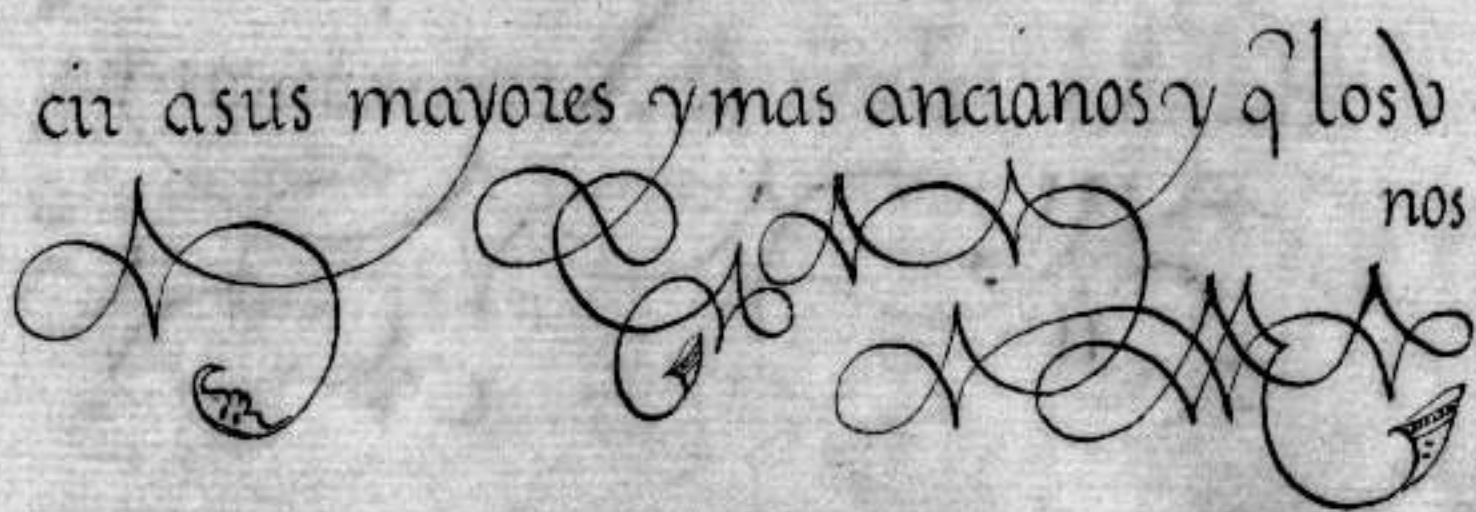 cir asus mayores y mas ancianos y q̃ los v
nos